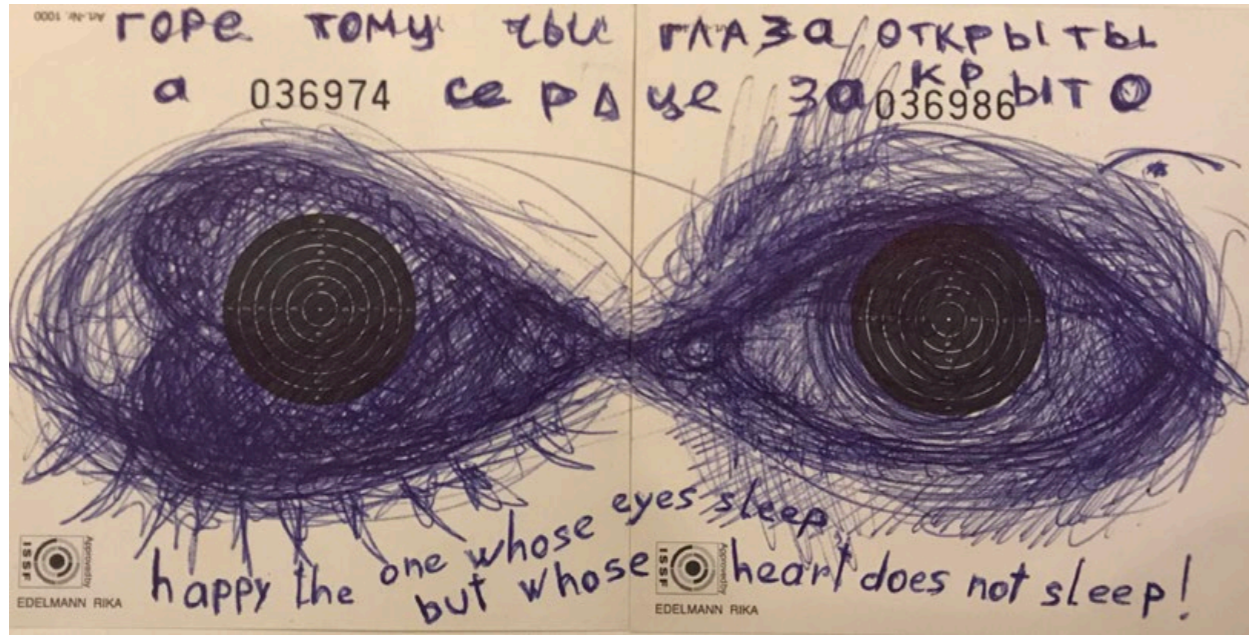 Art.-Nr. 1000
горе тому чьи глаза открыты
а 036974 сердце закрыто
036986
happy the one whose eyes sleep
but whose heart does not sleep!
Approved by
ISSF
EDELMANN RIKA
Approved by
ISSF
EDELMANN RIKA